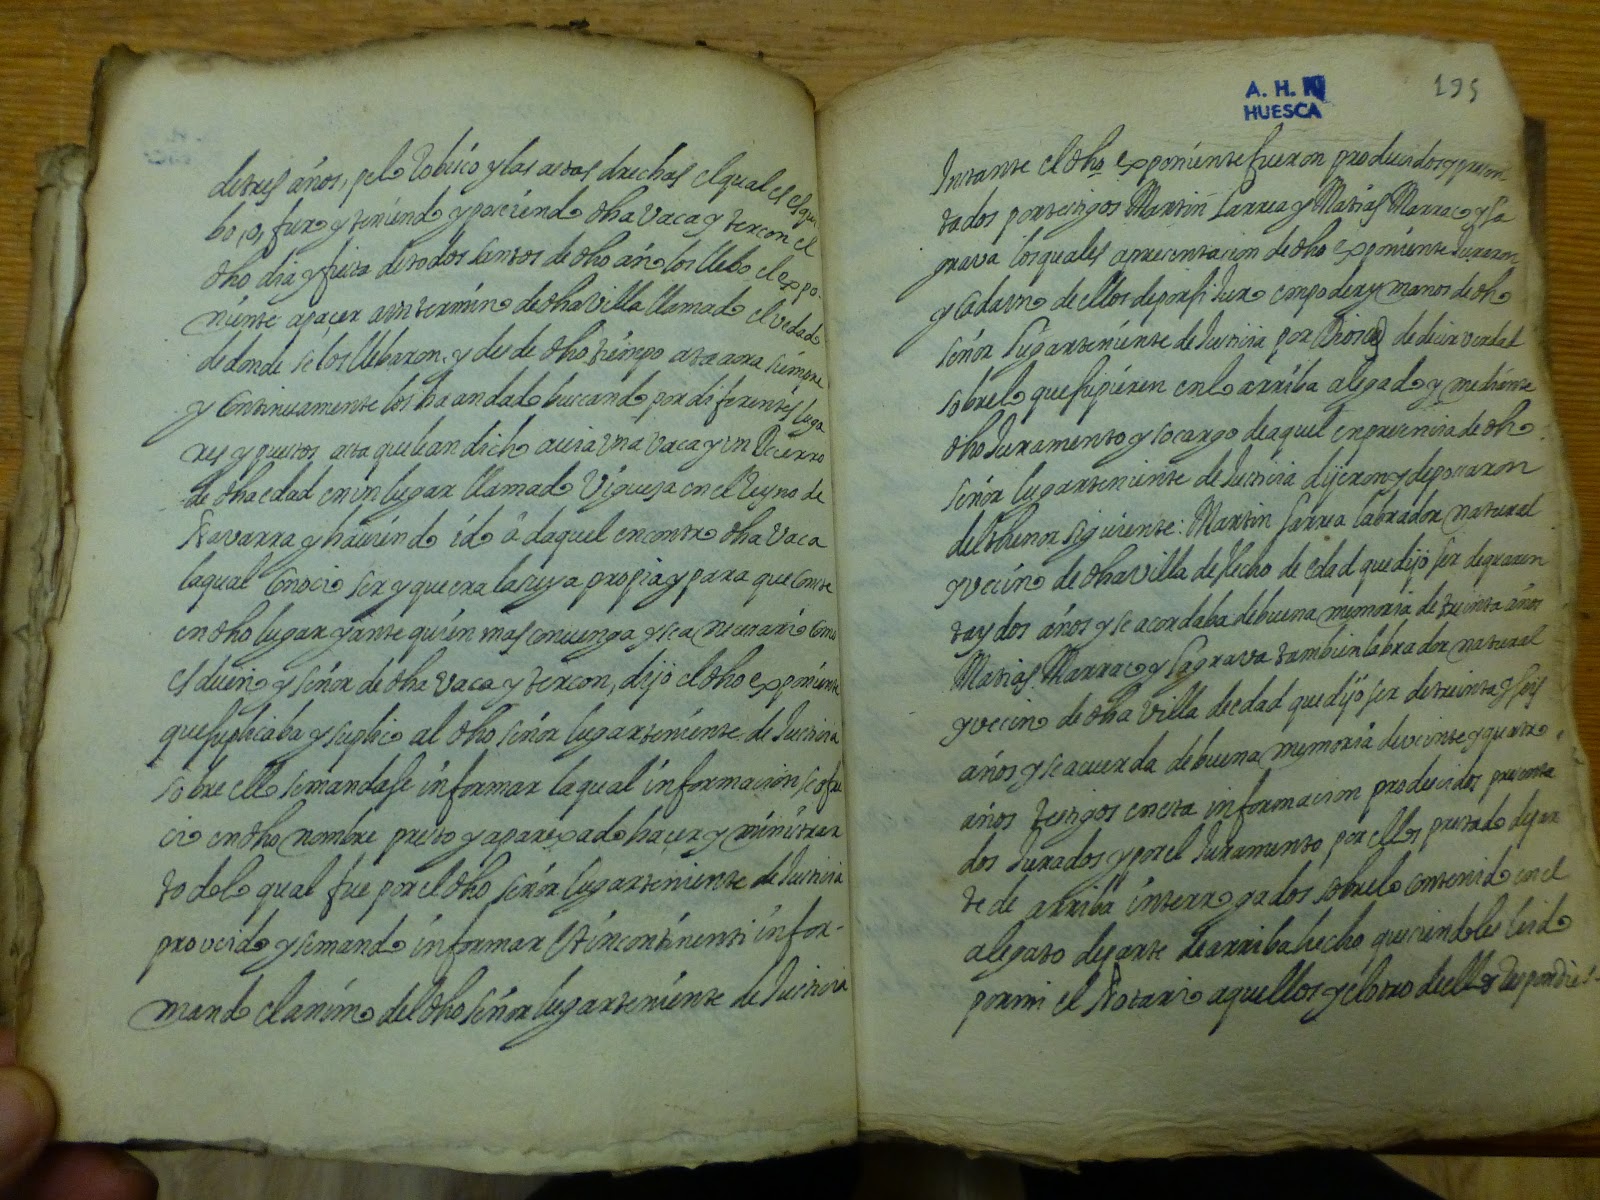 de tres años, pelo Robisco y las astas drechas el qual es esqui
bo, o, furo y teniendo y posciendo dha Vaca y tercon el
dho dia y fiesta de todos Santos de dho año los llebo el expo-
niente apacer a un termino de dha villa llamado el vedado
de donde se los llebaron, y des de dho tiempo asta aora siempre
y Continuamente los ha andado buscando por diferentes luga
res y puestos asta que le an dicho avia una vaca y un Becerro
de dha edad en un lugar llamado Viguesa en el Reyno de
Navarra y haviendo ido â daquel encontro dha Vaca
la qual Conocio ser y que era la suya propia y para que Conste
en dho lugar y ante quien mas convenga y sea necesario Como
es dueño y señor de dha Vaca y tercon, dijo el dho exponiente
que suplicaba y suplico al dho señor lugarteniente de Justicia
sobre ello se mandase informar la qual informacion se ofre
cio en dho nombre presto y aparexado hacer y ministrar
todo lo qual fue por el dho señor lugarteniente de Justicia
proveido y se mando informar Et incontinenti infor-
mando el animo del dho señor lugarteniente de Justicia
A. H. P
HUESCA
195
Instante el dho exponiente fueron producidos y presen-
tados por testigos Martin Larrea y Matias Marraco y La
grava los quales a presentacion de dho exponiente Juraron
y Cada uno de ellos de por si Juro en poder y manos de dho
señor Lugarteniente de Justicia por Dios de decir verdad
sobre lo que supieren en lo arriba alegado y mediante
dho Juramento y so cargo de aquel en presencia de dho
señor lugarteniente de Justicia dijeron y deposaron
del thenor siguiente: Martin Larrea labrador natural
y vecino de dha villa de Hecho de edad que dijo ser de quaren
ta y dos años y se acordaba de buena memoria de treinta años
Matias Marraco y Lagrava tambien labrador natural
y vecino de dha Villa de edad que dijo ser de treinta y seis
años y se acuerda de buena memoria de veinte y quatro
años testigos en esta informacion producidos presenta
dos Jurados y por el Juramento por ellos prestado de par
te de arriba interrogados sobre lo contenido en el
alegato de parte de arriba hecho que siendoles leido
por mi el Notario aquellos y el otro de ellos Respondie-